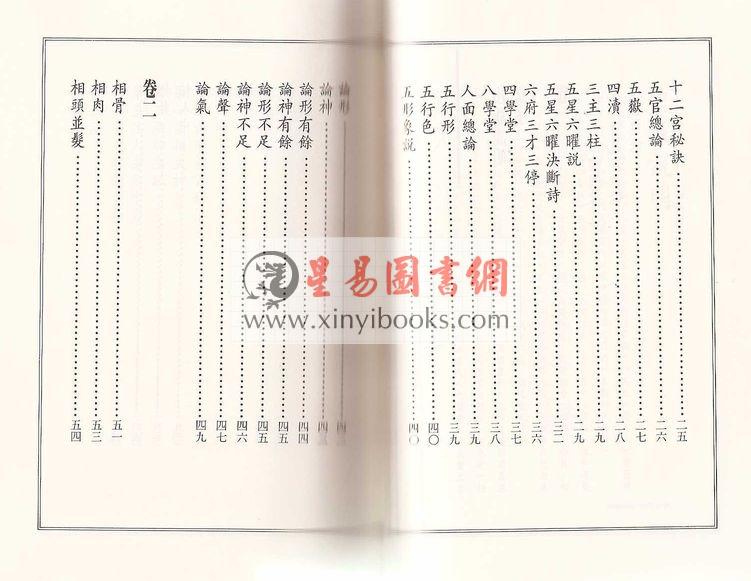 十二宮秘訣 二五
五官總論 二六
五嶽 二七
四瀆 二八
三主三柱 二九
五星六曜説 二九
五星六曜決斷詩 三二
六府三才三停 三六
四學堂 三七
八學堂 三八
人面總論 三九
五行形 三九
五行色 四〇
五形象説 四〇
論形
論神
論形有餘 四四
論神有餘 四五
論形不足 四五
論神不足 四六
論聲 四七
論氣 四九
卷二
相骨 五一
相肉 五三
相頭並髮 五四
星易圖書網
www.xinyibooks.com